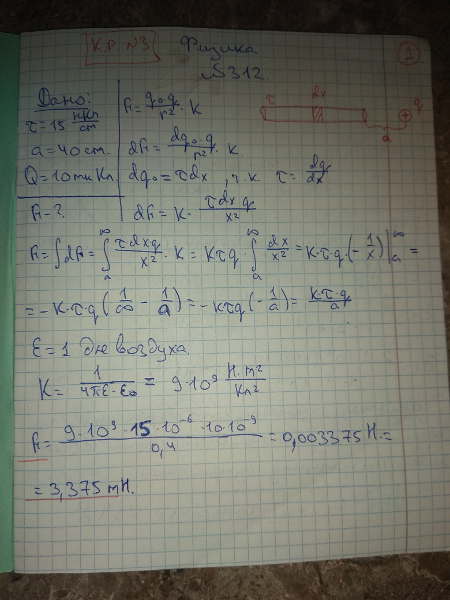 К.Р. №3
Физика
1
№312.
Дано:
τ = 15 мкКл/см
a = 40 cm.
Q = 10 нКл
F - ?
F = q₀·q/r² · K
dF = dq₀·q/r² · K.
dq₀ = τdx, т.к. τ = dq/dx
dF = K · τdx q/x²
τ dx a q
F = ∫dF = ∫ₐ^∞ τdx q/x² · K = Kτq · ∫ₐ^∞ dx/x² = K·τ·q·(-1/x)|ₐ^∞ =
= -K·τ·q(1/∞ - 1/a) = -Kτq(-1/a) = K·τ·q/a
ε = 1 для воздуха
K = 1/4πε·ε₀ = 9·10⁹ H·m²/Кл²
F = 9·10⁹·15·10⁻⁶·10·10⁻⁹/0,4 = 0,003375 H. =
= 3,375 mH.